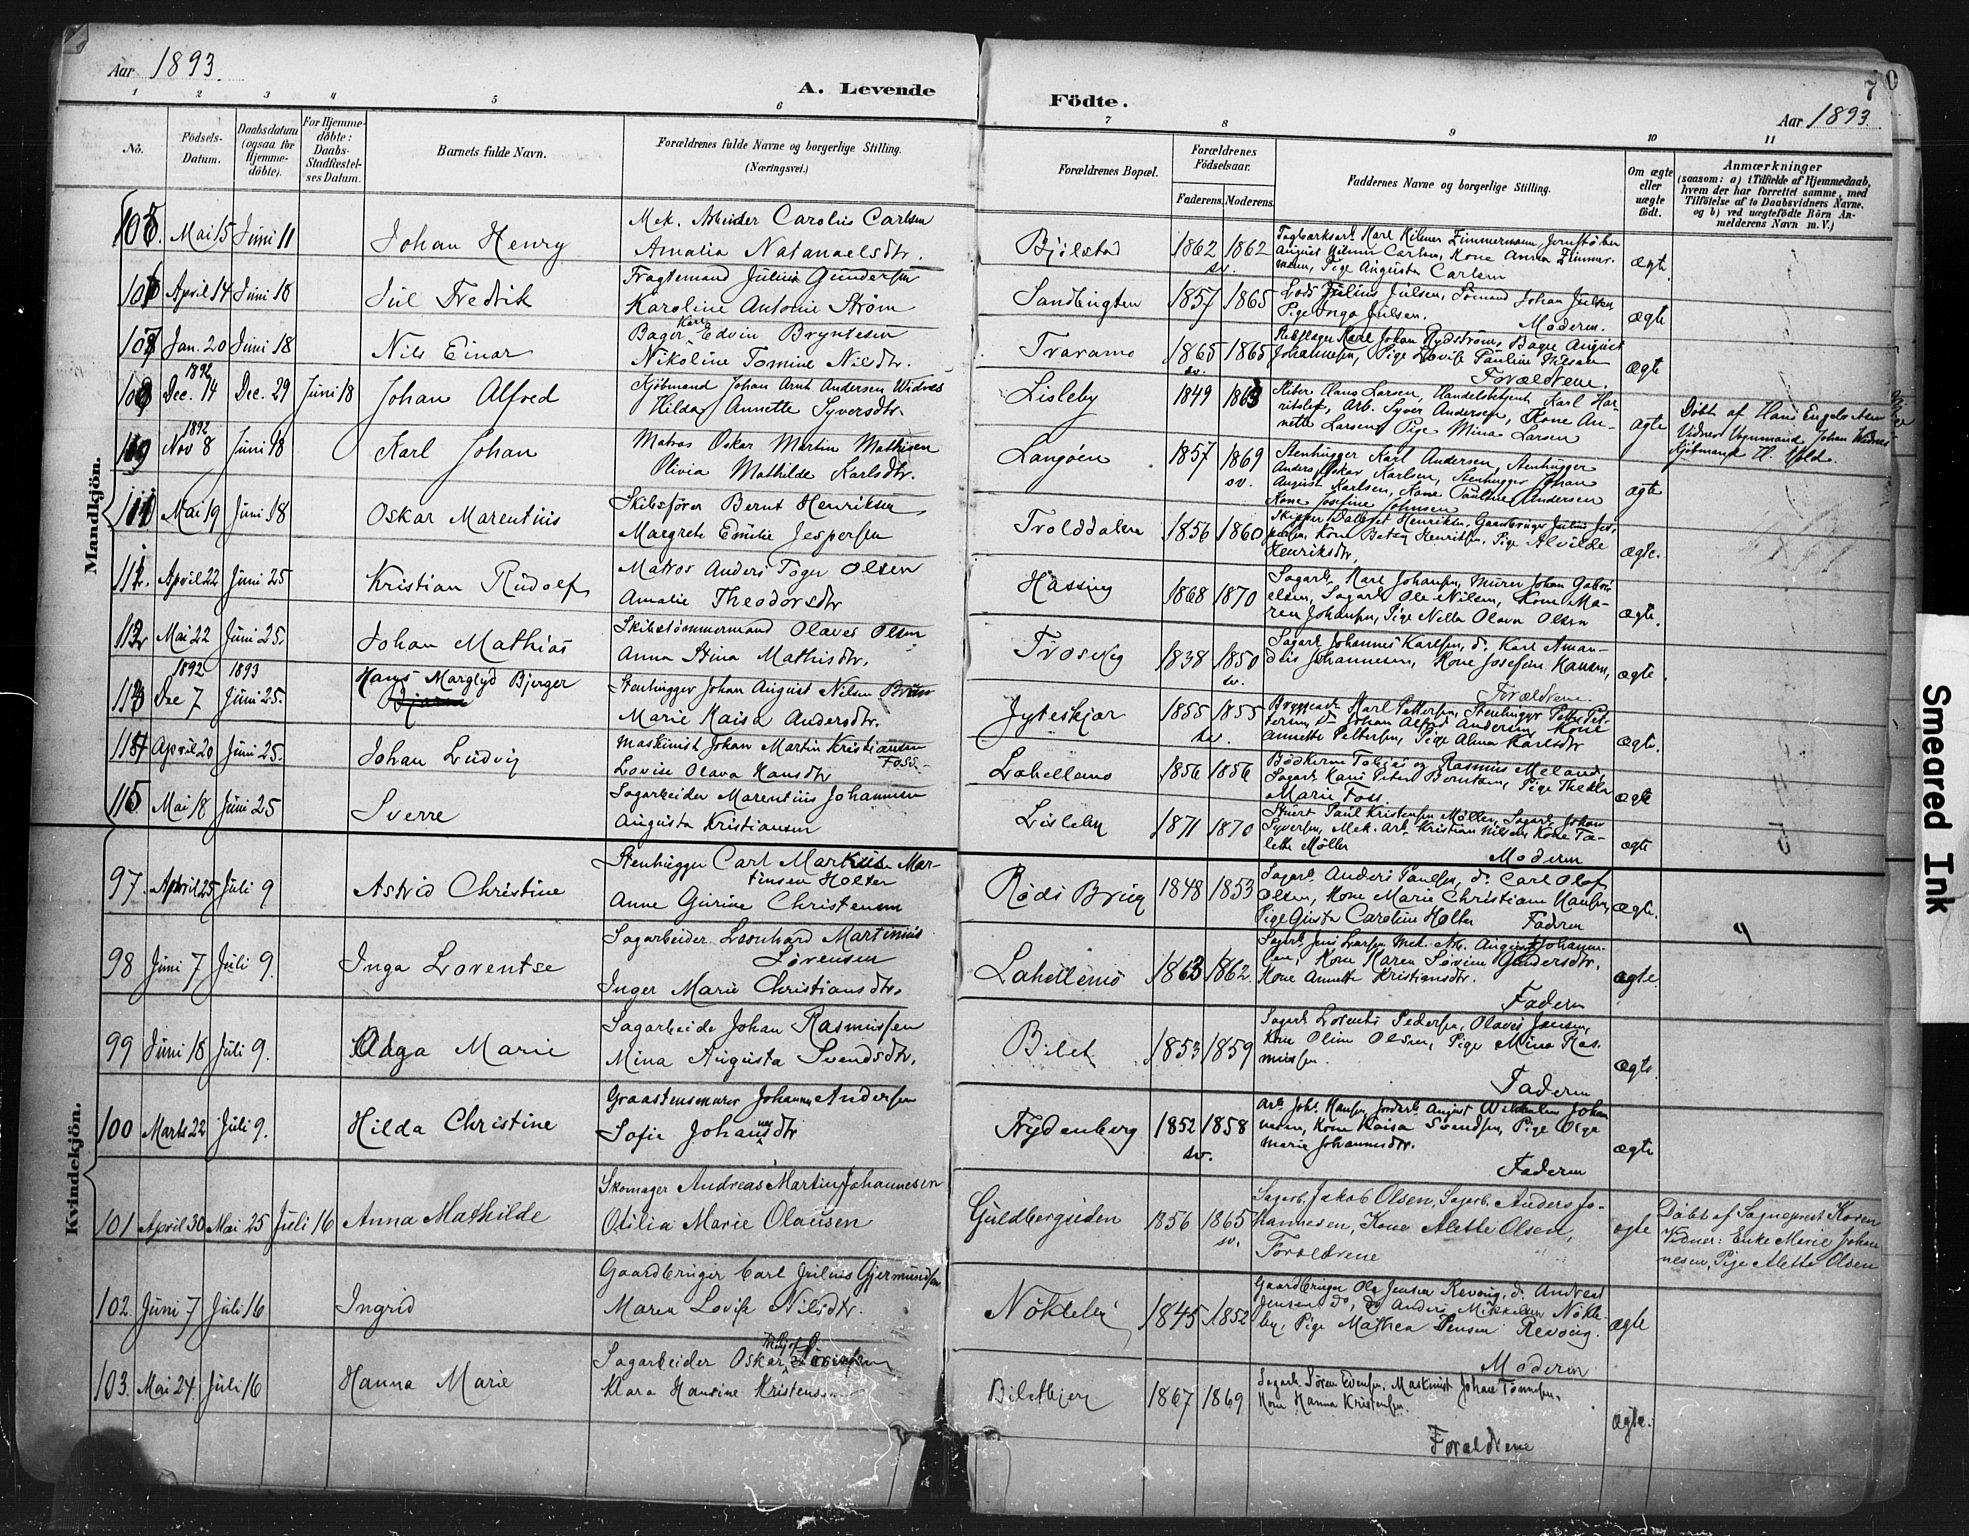 Aar 1893.
A. Levende
Födte.
70
Aar 1893.
1 2 3 4 5 6 7 8 9 10 11
No.
Födsels-Datum.
Daabsdatum (ogsaa for Hjemme-döbte).
For Hjemme-döbte: Daabs-Stadfæstel-ses Datum.
Barnets fulde Navn.
Forældrenes fulde Navne og borgerlige Stilling.
(Næringsvei.)
Forældrenes Bopæl.
Forældrenes Födselsaar.
Faderens. Moderens.
Faddernes Navne og borgerlige Stilling.
Om ægte eller uægte födt.
Anmærkninger
(saasom: a) i Tilfælde af Hjemmedaab,
hvem der har forrettet samme, med
Tilföielse af to Daabsvidners Navne,
og b) ved uægtefödte Börn An-
melderens Navn m. V.)
Mandkjön.
105. Mai 15 Juni 11 Johan Henry
Mek. Arbeider Carolius Carlsen
Amalia Natanaelsdtr.
Bjölstad 1862 1862 sv.
August Hilmer Carlsen, Kone Anna Zimmer-
mann, Pige Augusta Carlsen
ægte.
106 April 14 Juni 18 Jul Fredrik
Fragtemand Julius Gundersen
Karoline Antonie Ström
Sandbugten 1857 1865
Lods Julius Julsen, Sömand Johan Julsen,
Pige Inga Julsen. Moderen.
ægte
107 Jan. 20 Juni 18 Nils Einar
Bager Karl Edvin Bryntesen
Nikoline Tomine Nilsdtr.
Traramo 1865 1865 sv.
Rebslager Karl Johan Rydström, Bager August
Johannesen, Pige Lovise Pauline Nilsen
Forældrene.
ægte
108 1892 Dec. 14 Dec. 29 Juni 18 Johan Alfred
Kjöbmand Johan Arnt Andersen Widnes
Hilda Annette Syversdtr.
Lisleby 1849 1863
Sliber Hans Larsen, Handelsbetjent Karl Har-
ritslef, Arb. Syver Andersen, Kone An-
nette Larsen, Pige Mina Larsen
ægte
Döbt af Hans Engebretsen
Vidner Vognmand Johan Widnes
Kjöbmand H. Hold.
109 1892 Nov 8 Juni 18 Karl Johan
Matros Oskar Martin Mathisen
Olivia Mathilde Karlsdtr.
Langöen 1857 1869 sv.
Stenhugger Karl Andersen, Stenhugger
Anders Oskar Karlsen, Stenhugger Johan
August Karlsen, Kone Pauline Andersen
Kone Josefine Johnsen
ægte
110 Mai 19 Juni 18 Oskar Marentius
Skibsförer Bernt Henriksen
Margrete Emilie Jespersen
Trolddalen 1856 1860
Henriksen, Gaardbruger Julius Jes-
persen, Kone Betzy Henriksen, Pige Alvilde
Henriksdtr.
ægte.
111. April 22 Juni 25 Kristian Rudolf
Matros Anders Toger Olsen
Amalie Theodorsdtr
Hassing 1868 1870
Sagarb. Karl Johansen, Murer Johan Gabri-
elsen, Sagarb. Ole Nilsen, Kone Ma-
ren Johansen, Pige Nella Olava Olsen
ægte.
112 Mai 22 Juni 25. Johan Mathias
Skibstömmermand Olaves Olsen
Anna Stina Mathisdtr.
Trosvig 1838 1850 sv.
Sagarb. Johannes Karlsen, d. Karl Aman-
dus Johannesen, Kone Josefine Hansen,
Forældrene
ægte.
113 1892 Dec 7 1893 Juni 25. Hans Marglyd Bjerger
Bjarne
Stenhugger Johan August Nilsen
Marie Kaisa Andersdtr.
Jyteskjær 1855 1855 sv.
Bryggearb. Karl Pettersen, Stenhugger Petter Pet-
tersen, d. Johan Alfred Andersen, Kone
Annette Pettersen, Pige Alma Karlsdtr
ægte.
114 April 20 Juni 25. Johan Ludvig
Maskinist Johan Martin Kristiansen Foss
Lovise Olava Hansdtr
Lahellemo 1856 1856
Bödkerne Tobias og Rasmus Meland,
Sagarb. Hans Peter Berntsen, Pige Thekla
Marie Foss.
ægte
115 Mai 18 Juni 25 Sverre
Sagarbeider Marentius Johannsen
Augusta Kristiansen
Lisleby 1871 1870
Stuert Paul Kristensen Möller, Sagarb. Johan
Syversen, Mek. Arb. Kristian Nilsen, Kone Ta-
lette Möller
Moderen
ægte
Kvindekjön.
97. April 25 Juli 9 Astrid Christine
Stenhugger Carl Markus Mar-
tinsen Holter
Anne Gurine Christensen
Röds Brug 1848 1853
Sagarb. Anders Paulsen, d. Carl Olaf
Olsen, Kone Marie Christiane Hansen,
Pige Gusta Caroline Holter Faderen
ægte.
98 Juni 7 Juli 9. Inga Lorentse
Sagarbeider Leonhard Martinius
Sörensen
Inger Marie Christiansdtr.
Lahellemo 1863 1862.
Sagarb. Jens Larsen, Mek. Arb. August Johann-
sen, Kone Karen Lovise Gundersdtr.
Kone Annette Kristiansdtr.
Faderen
ægte
99 Juni 18 Juli 9. Olga Marie
Sagarbeide Johan Rasmussen
Mina Augusta Svendsdtr.
Bilet 1853 1859
Sagarb. Lorents Pedersen, Olavus Jensen,
Kone Oline Olsen, Pige Mina Ras-
mussen.
Faderen
ægte.
100 Marts 22 Juli 9. Hilda Christine
Graastensmurer Johannes Andersen
Sofie Johannesdtr
Nydenberg 1852 1858 sv.
Arb. Johs. Hansen, Jordarb. August Wilhelm Johan
nesen, Kone Kaisa Svendsen, Pige Olga
Marie Johannesdtr.
Faderen
ægte
101 April 30 Mai 25 Juli 16 Anna Mathilde
Skomager Andreas Martin Johannesen
Otilia Marie Olausen
Guldbergsiden 1856 1865 sv.
Sagarb. Jakob Olsen, Sagarb. Anders Jo-
hannesen, Kone Alette Olsen,
Forældrene
ægte
Döbt af Sognepræst Koren
Vidner: Enke Marie Johan
nesen, Pige Alette Olsen
102. Juni 7 Juli 16 Ingrid
Gaardbruger Carl Julius Gjermundsen
Maren Lovise Nilsdtr.
Nökleby 1845 1852
Gaardbruger Ole Jensen Revoug, d. Andreas
Jensen do, do Anders Mikkelsen Nökle-
by, Pige Mathea Jensen Revoug.
Moderen
ægte
103. Mai 24. Juli 16 Hanna Marie
Sagarbeider Oskar
Klara Hansine Kristensen
Biletbjerg 1867 1869
Sagarb. Sören Edvardsen, Maskinist Johan Tönnesen,
Kone Hanna Kristensen.
Forældrene
ægte.
Smeared Ink